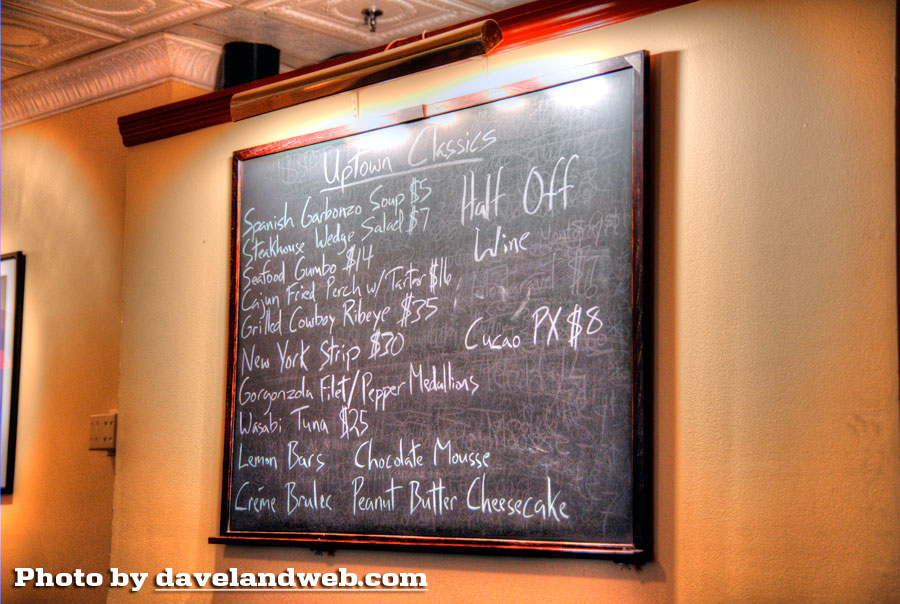 Uptown Classics
Spanish Garbonzo Soup $5
Steakhouse Wedge Salad $7
Seafood Gumbo $14
Cajun Fried Perch w/ Tartar $16
Grilled Cowboy Ribeye $35
New York Strip $30
Gorgonzola Filet/Pepper Medallions
Wasabi Tuna $25
Lemon Bars Chocolate Mousse
Créme Brulee Peanut Butter Cheesecake
Half Off
Wine
Cucao PX $8
Photo by davelandweb.com